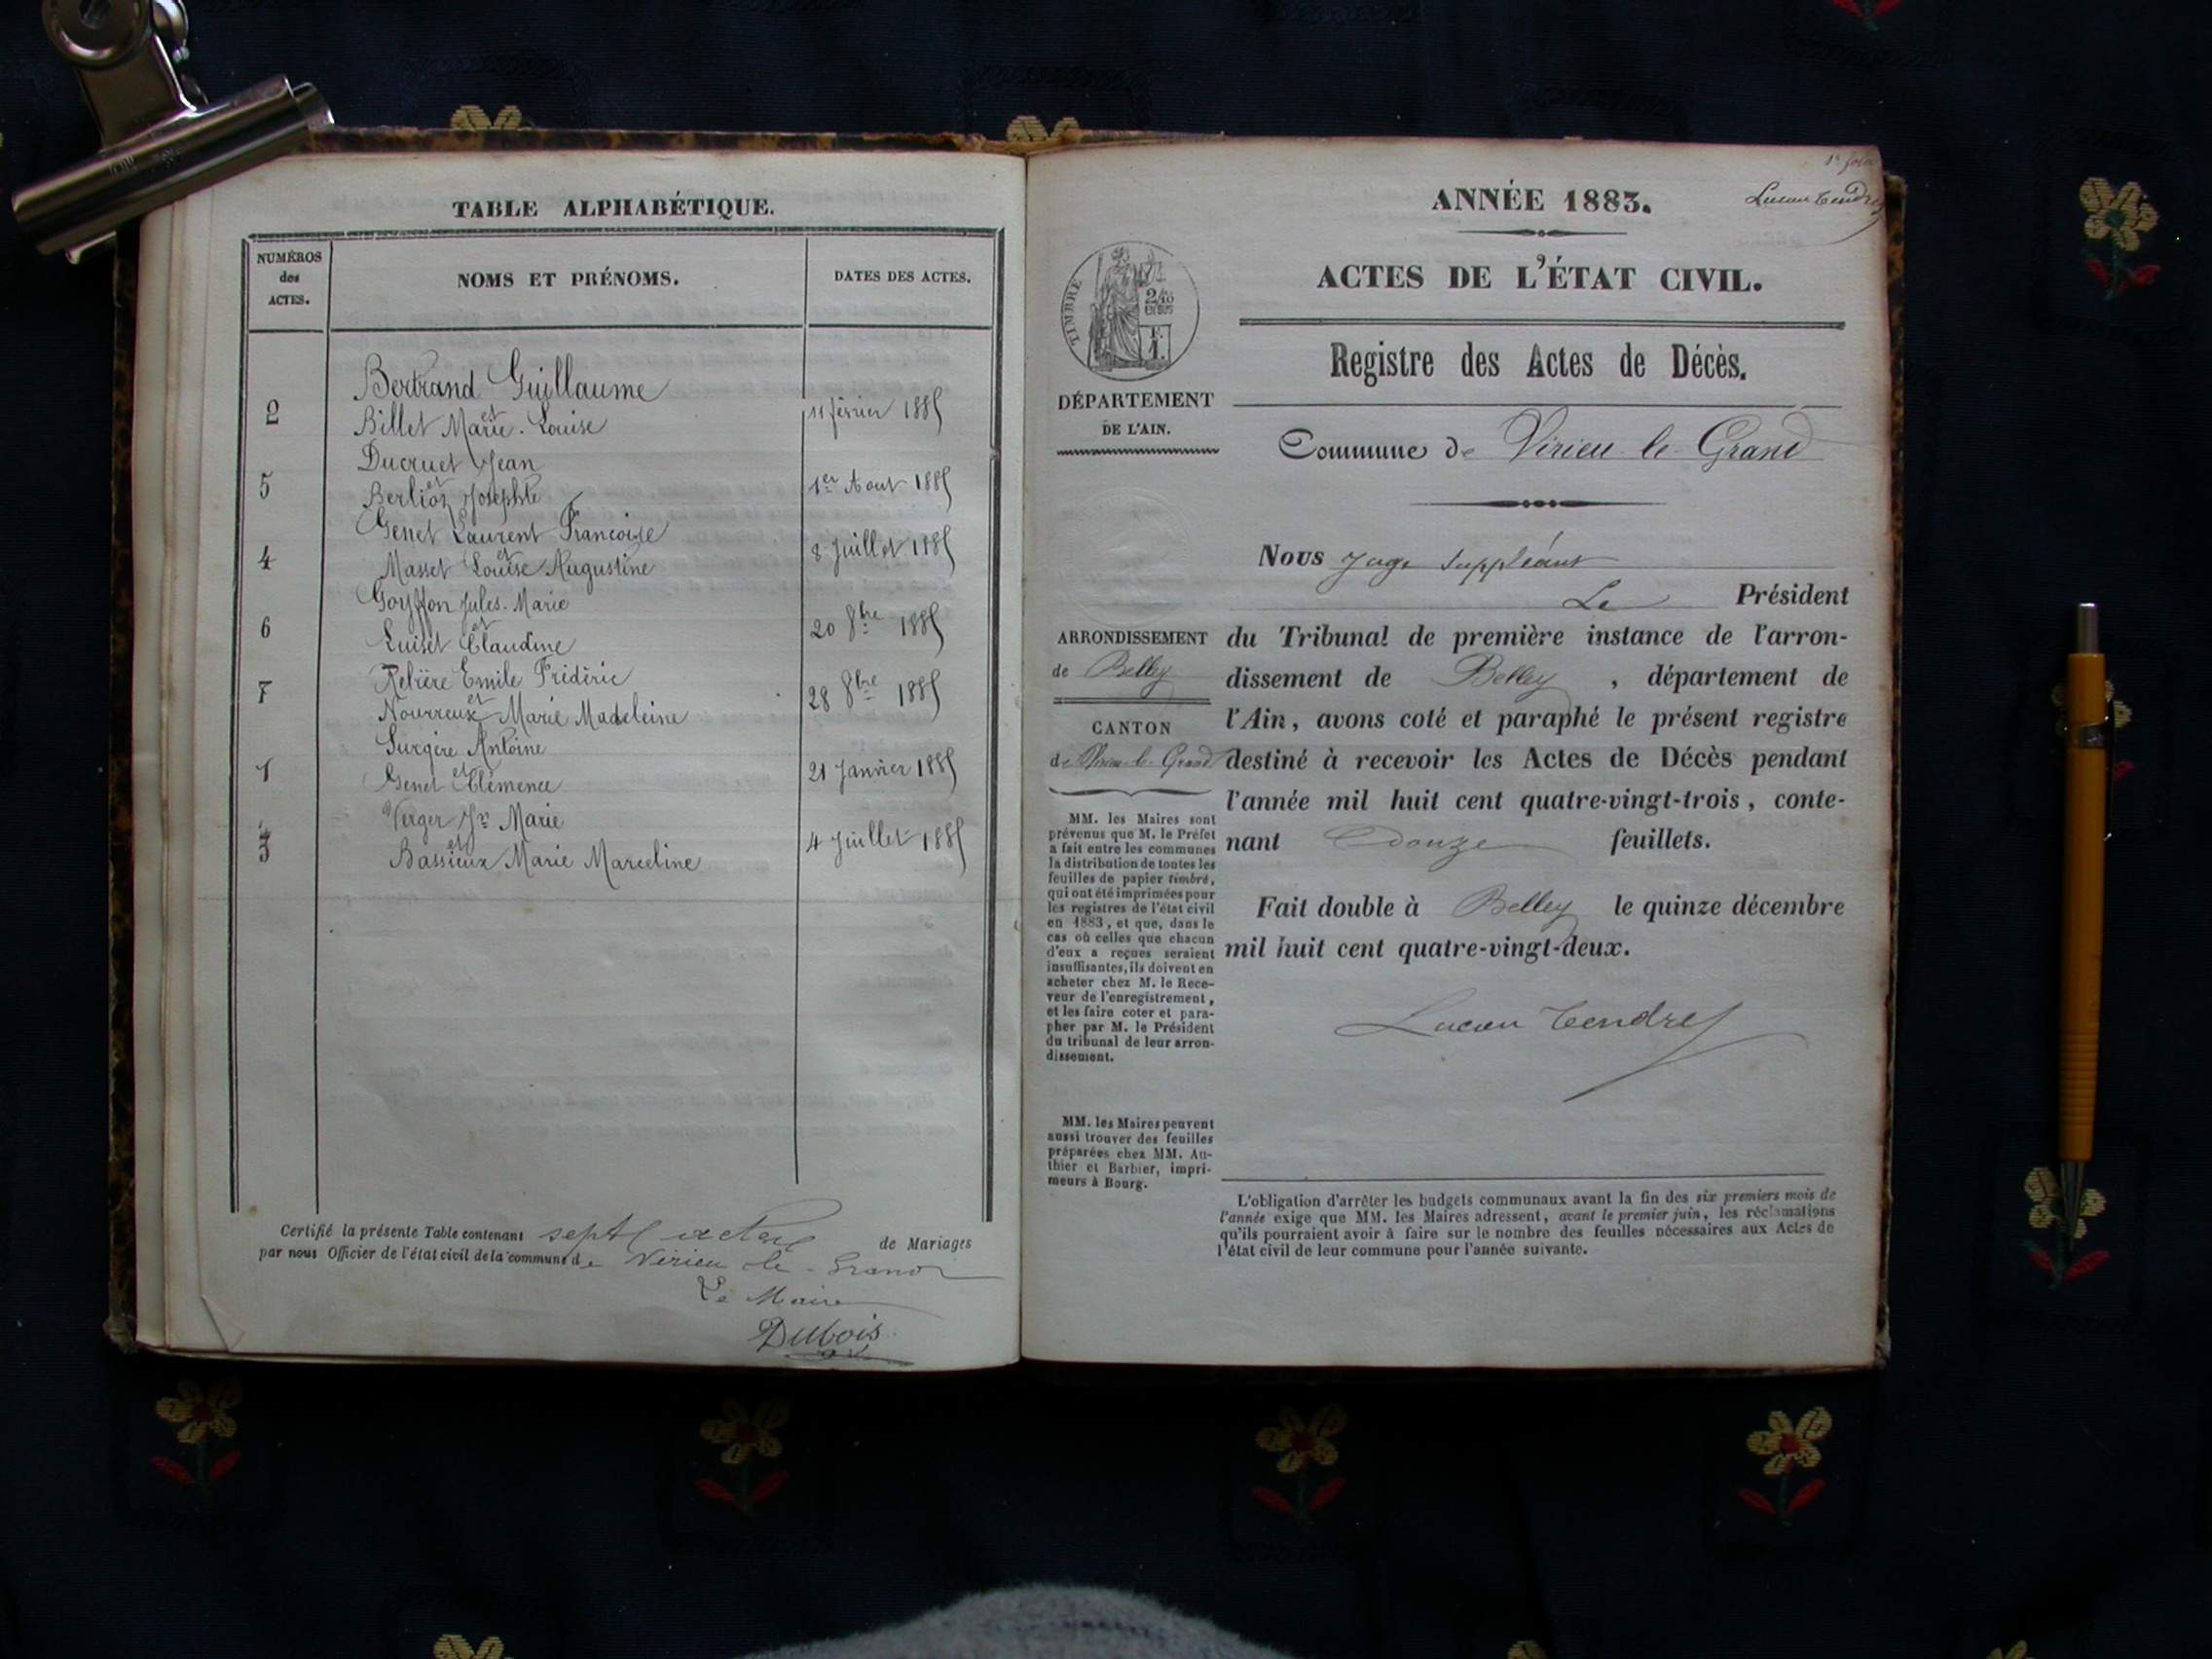 TABLE ALPHABÉTIQUE.
NUMÉROS
des
ACTES.
NOMS ET PRÉNOMS.
DATES DES ACTES.
Bertrand Guillaume
2 et 11 février 1885
Billet Marie-Louise
Ducruet Jean
5 et 1er Aout 1885
Berlioz Josephte
Genet Laurent Francoise
4 et 8 Juillet 1885
Masset Louise Augustine
Goyffon Jules-Marie
6 et 20 8bre 1885
Luiset Claudine
Emile Fridéric
7 et 28 8bre 1885
Marie Madeleine
Surgère Antoine
1 et 21 Janvier 1885
Genet Clémence
Verger Marie
3 et 4 Juillet 1885
Bassieux Marie Marceline
Certifié la présente Table contenant sept actes de Mariages
par nous Officier de l'état civil de la commune de Virieu-le-Grand
Le Maire
Dubois
1er folio
Lucien Tendret
ANNÉE 1883.
ACTES DE L'ÉTAT CIVIL.
TIMBRE
2/10
EN SUS
F.
1.
Registre des Actes de Décès.
DÉPARTEMENT
DE L'AIN.
Commune de Virieu-le-Grand
Nous Juge Suppléant
Le Président
ARRONDISSEMENT
de Belley
CANTON
de Virieu-le-Grand
du Tribunal de première instance de l'arron-
dissement de Belley, département de
l'Ain, avons coté et paraphé le présent registre
destiné à recevoir les Actes de Décès pendant
l'année mil huit cent quatre-vingt-trois, conte-
nant douze feuillets.
Fait double à Belley le quinze décembre
mil huit cent quatre-vingt-deux.
Lucien Tendret
MM. les Maires sont
prévenus que M. le Préfet
a fait entre les communes
la distribution de toutes les
feuilles de papier timbré,
qui ont été imprimées pour
les registres de l'état civil
en 1883, et que, dans le
cas où celles que chacun
d'eux a reçues seraient
insuffisantes, ils doivent en
acheter chez M. le Rece-
veur de l'enregistrement,
et les faire coter et para-
pher par M. le Président
du tribunal de leur arron-
dissement.
MM. les Maires peuvent
aussi trouver des feuilles
préparées chez MM. Au-
thier et Barbier, impri-
meurs à Bourg.
L'obligation d'arrêter les budgets communaux avant la fin des six premiers mois de
l'année exige que MM. les Maires adressent, avant le premier juin, les réclamations
qu'ils pourraient avoir à faire sur le nombre des feuilles nécessaires aux Actes de
l'état civil de leur commune pour l'année suivante.